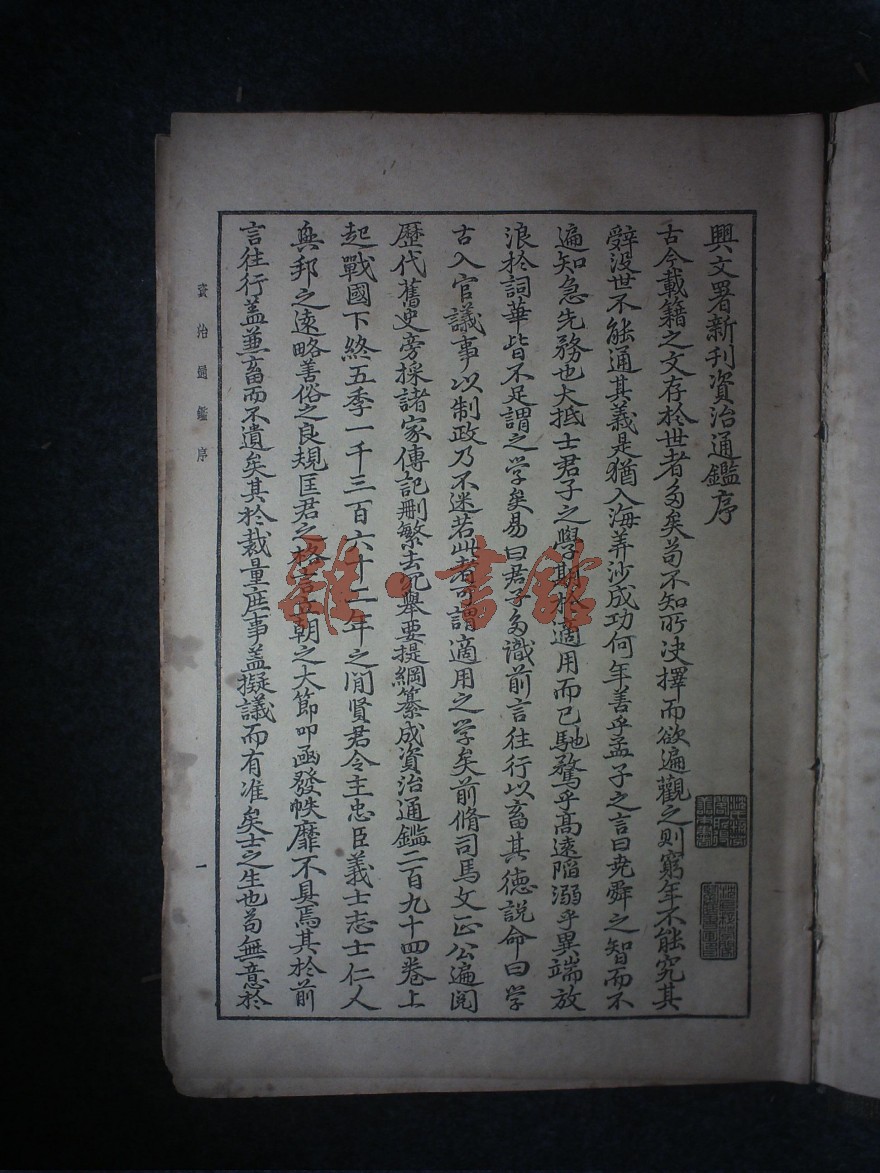 興文署新刊資治通鑑序
古今載籍之文存於世者多矣苟不知所决擇而欲遍觀之則窮年不能究其
辤没世不能通其義是猶入海筭沙成功何年善乎孟子之言曰尭舜之智而不
遍知急先務也大抵士君子之學期於適用而已馳騖乎髙遠陥溺乎異端放
浪於詞華皆不足謂之学矣易曰君子多識前言往行以畜其徳說命曰学
古入官議事以制政乃不迷若此者可謂適用之学矣前脩司馬文正公遍閲
歷代舊史旁採諸家傳記刪繁去冗舉要提綱纂成資治通鑑二百九十四卷上
起戰國下終五季一千三百六十二年之閒賢君令主忠臣義士志士仁人
興邦之遠略善俗之良規匡君之格言立朝之大節叩函發帙靡不具焉其於前
言往行盖兼畜而不遺矣其於裁量庶事盖擬議而有准矣士之生也苟無意於
資治通鑑序
一
雜·書館